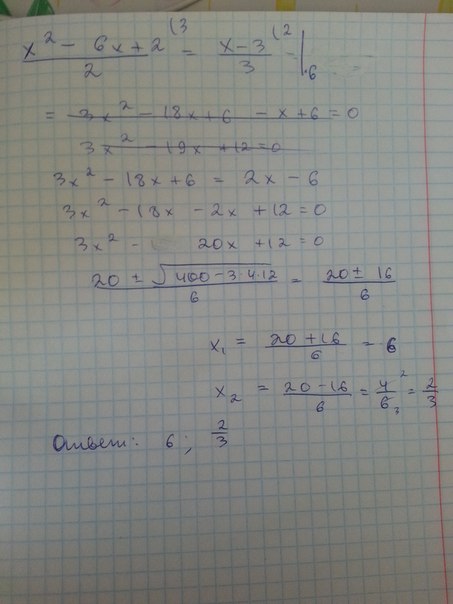 (x² - 6x + 2)/2 (3 = (x - 3)/3 (2 - | · 6
= 3x² - 18x + 6 - x + 6 = 0
3x² - 19x + 12 = 0
3x² - 18x + 6 = 2x - 6
3x² - 18x - 2x + 12 = 0
3x² - 20x + 12 = 0
(20 ± √(400 - 3·4·12))/6 = (20 ± 16)/6
x₁ = (20 + 16)/6 = 6
x₂ = (20 - 16)/6 = 4/6 2 3 = 2/3
Ответ: 6; 2/3